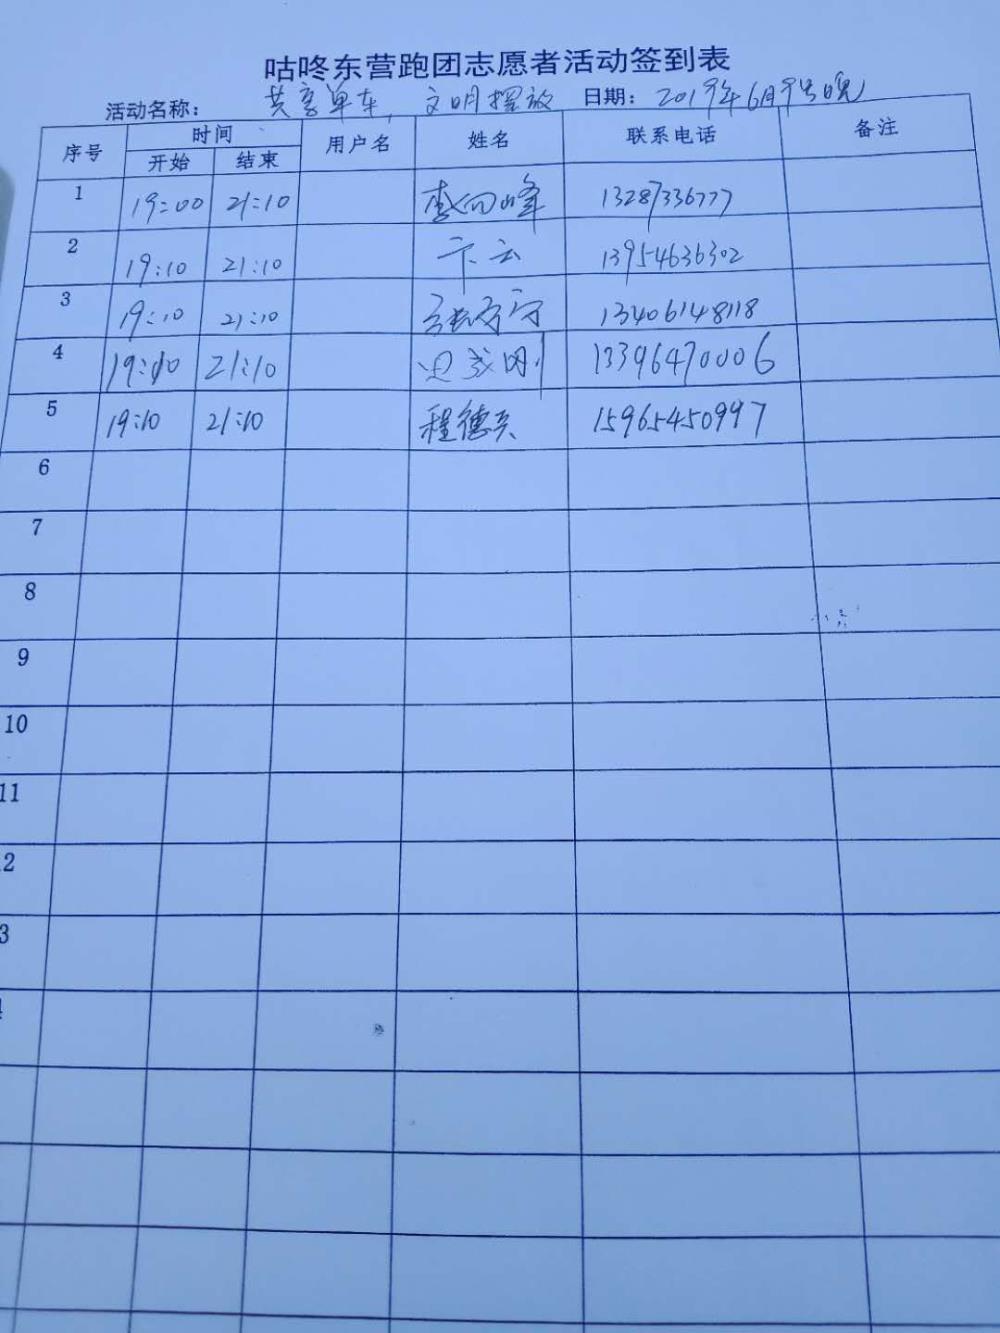 咕咚东营跑团志愿者活动签到表
活动名称: 共享单车,文明摆放 日期: 2019年6月9号晚
序号 时间 用户名 姓名 联系电话 备注
开始 结束
1 19:00 21:10 李向峰 13287336777
2 19:10 21:10 卞云 13954636302
3 19:10 21:10 13406148118
4 19:10 21:10 13396470006
5 19:10 21:10 程德兵 15965450997
6
7
8
9
10
11